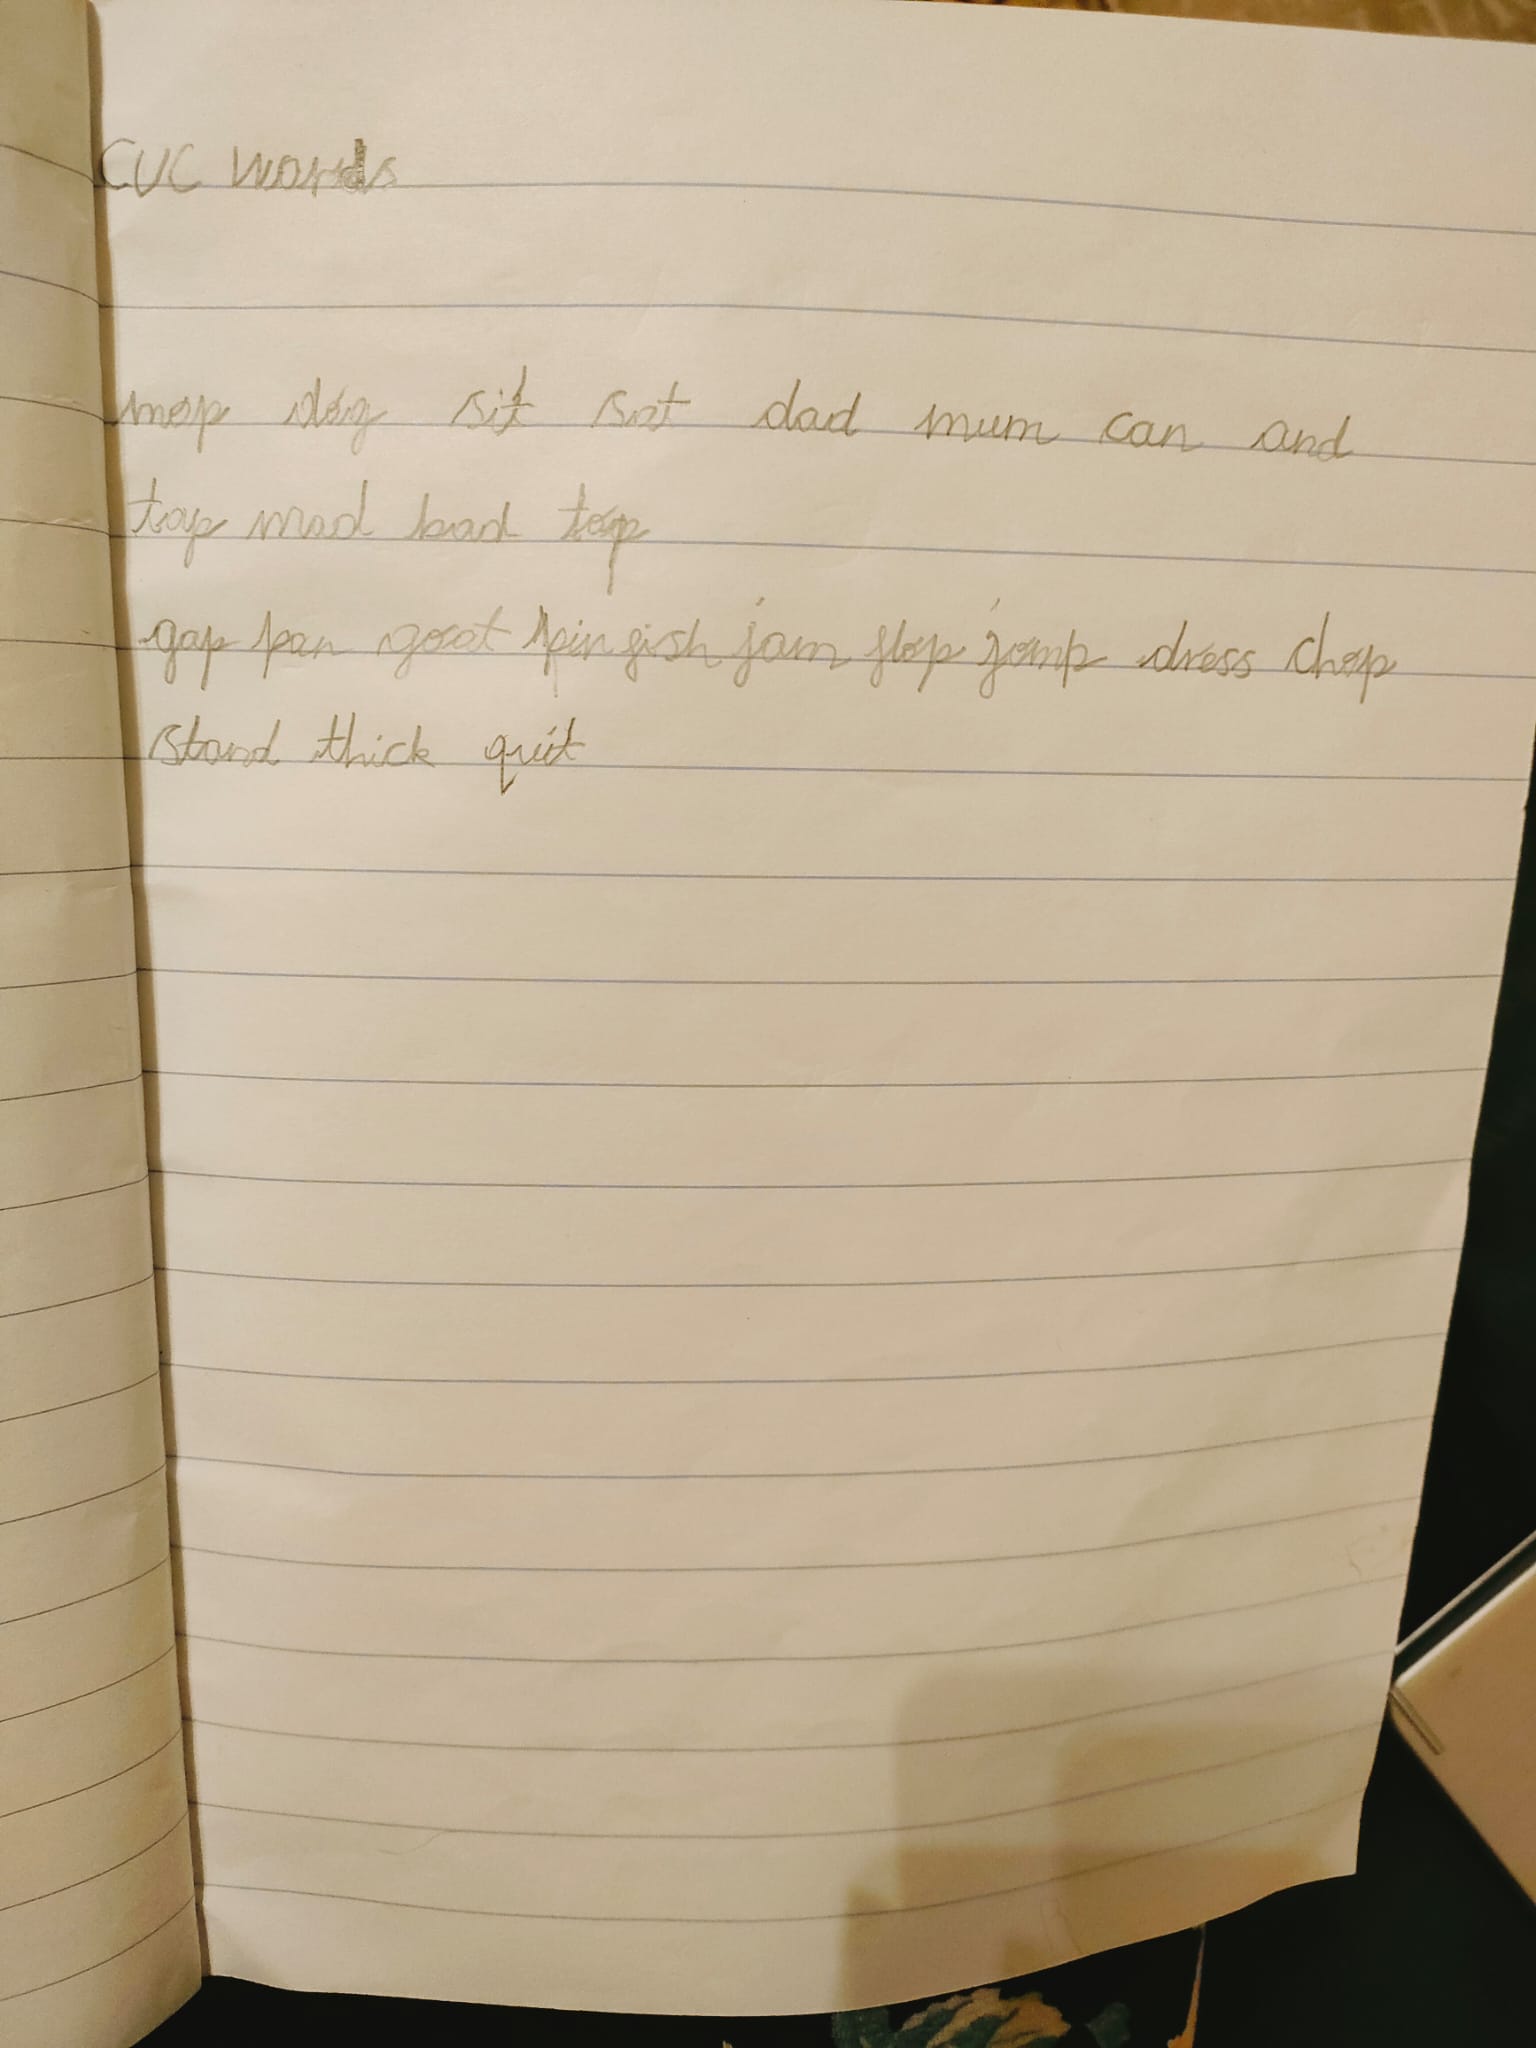 CVC words
mop dog sit sat dad mum can and
tap mad bad top
gap pan goat pin fish jam flop jomp dress chop
stand thick quit